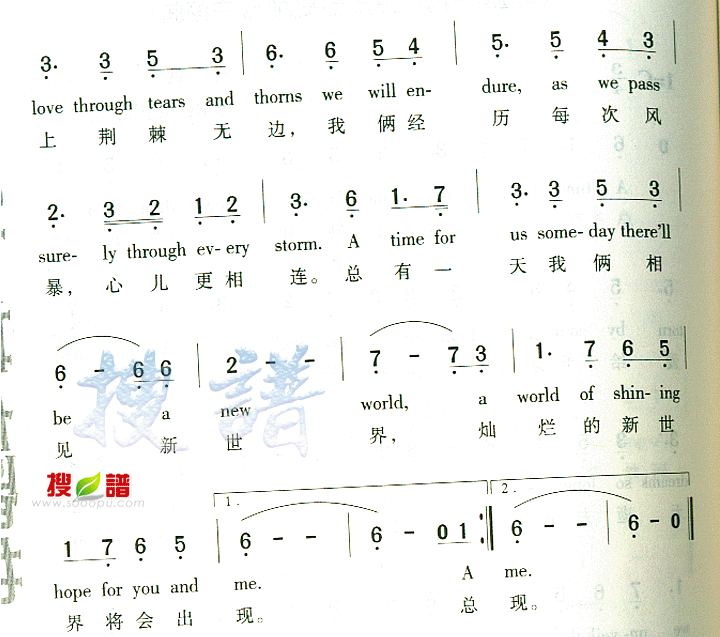 3. 3 5 3 | 6. 6 5 4 | 5. 5 4 3 |
love through tears and thorns we will en- dure, as we pass
上 荆 棘 无 边, 我 俩 经 历 每 次 风
2. 3 2 1 2 | 3. 6 1. 7 | 3. 3 5 3 |
sure- ly through ev- ery storm. A time for us some- day there'll
暴, 心 儿 更 相 连。 总 有 一 天 我 俩 相
6 - 6 6 | 2 - - | 7 - 7 3 | 1. 7 6 5 |
be a new world, a world of shin- ing
见 新 世 界, 灿 烂 的 新 世
搜譜
www.sooopu.com
1. 2.
1 7 6 5 | 6 - - | 6 - 0 1 :| 6 - - | 6 - 0
hope for you and me. A me.
界 将 会 出 现。 总 现。